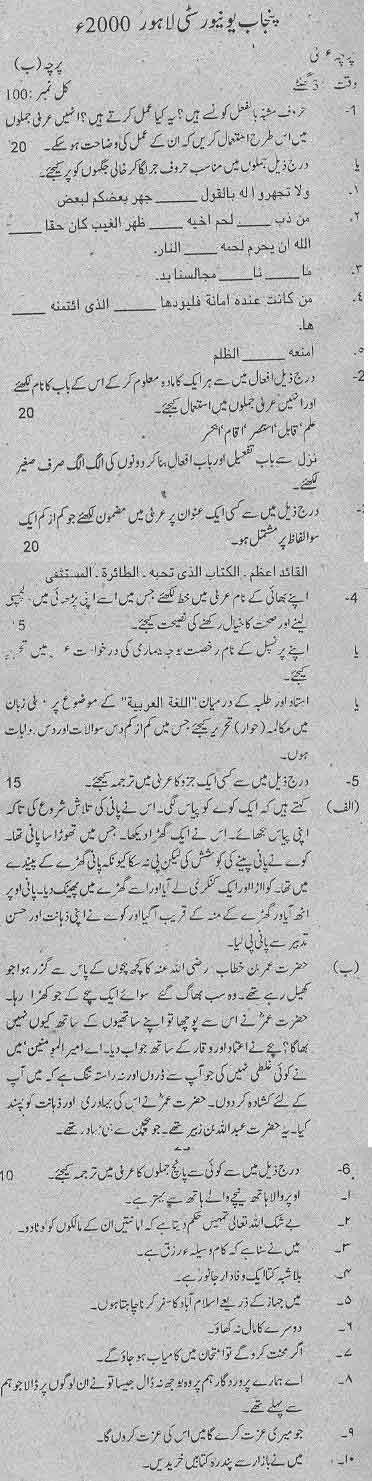 پنجاب یونیورسٹی لاہور 2000ء
پرچہ عربی
پرچہ (ب)
وقت 3 گھنٹے
کل نمبر: 100
1- حروف مشبہ بالفعل کونسے ہیں؟ یہ کیا عمل کرتے ہیں؟ انہیں عربی جملوں
میں اس طرح استعمال کریں کہ ان کے عمل کی وضاحت ہو سکے۔ 20
یا درج ذیل جملوں میں مناسب حروف جر لگا کر خالی جگہوں کو پر کیجئے۔
۱۔ ولا تجهروا له بالقول _____ جهر بعضكم لبعض
۲۔ من ذب _____ لحم اخيه _____ ظهر الغيب كان حقا _____
الله ان يحرم لحمه _____ النار.
۳۔ ما _____ نا _____ مجالسنا بد.
۴۔ من كانت عنده امانة فليودها _____ الذى ائتمنه _____
ها.
۵۔ امنعه _____ الظلم
2- درج ذیل افعال میں سے ہر ایک کا مادہ معلوم کر کے اس کے باب کا نام لکھئے
اور انہیں عربی جملوں میں استعمال کیجئے۔ 20
علم، قابل، استنصر، اقام، انکسر
نزل سے باب تفعیل اور باب افعال بنا کر دونوں کی الگ الگ صرف صغیر
لکھئے۔
درج ذیل میں سے کسی ایک عنوان پر عربی میں مضمون لکھئے جو کم از کم ایک
سو الفاظ پر مشتمل ہو۔ 20
القائد اعظم۔ الكتاب الذى تحبه۔ الطائرة۔ المستشفى
4- اپنے بھائی کے نام عربی میں خط لکھئے جس میں اسے اپنی پڑھائی میں دلچسپی
لینے اور صحت کا خیال رکھنے کی نصیحت کیجئے۔ 5
یا اپنے پرنسپل کے نام رخصت بوجہ بیماری کی درخواست میں تحریر
کیجئے۔
یا استاد اور طلبہ کے درمیان "اللغة العربية" کے موضوع پر زبان
میں مکالمہ (حوار) تحریر کیجئے جس میں کم از کم دس سوالات اور دس جوابات
ہوں۔
5- درج ذیل میں سے کسی ایک جزو کا عربی میں ترجمہ کیجئے۔ 15
(الف) کہتے ہیں کہ ایک کوے کو پیاس لگی۔ اس نے پانی کی تلاش شروع کی تاکہ
اپنی پیاس بجھائے۔ اس نے ایک گھڑا دیکھا۔ جس میں تھوڑا سا پانی تھا۔
کوے نے پانی پینے کی کوشش کی لیکن پی نہ سکا کیونکہ پانی گھڑے کے پیندے
میں تھا۔ کوا اڑا اور ایک کنکری لے آیا اور اسے گھڑے میں پھینک دیا۔ پانی اوپر
اٹھ آیا اور گھڑے کے منہ کے قریب آ گیا اور کوے نے اپنی ذہانت اور حسن
تدبیر سے پانی پی لیا۔
(ب) حضرت عمر بن خطاب رضی اللہ عنہ کا کچھ بچوں کے پاس سے گزر ہوا جو
کھیل رہے تھے۔ وہ سب بھاگ گئے سوائے ایک بچے کے جو کھڑا رہا۔
حضرت عمرؓ نے اس سے پوچھا تو اپنے ساتھیوں کے ساتھ کیوں نہیں
بھاگا؟ بچے نے اعتماد اور وقار کے ساتھ جواب دیا۔ اے امیر المومنین، میں
نے کوئی غلطی نہیں کی جو آپ سے ڈروں اور نہ راستہ تنگ ہے کہ میں آپ
کے لئے کشادہ کر دوں۔ حضرت عمرؓ نے اس کی بہادری اور ذہانت کو پسند
کیا۔ یہ حضرت عبداللہ بن زبیر تھے۔ جو بچپن سے ہی بہادر تھے۔
6- درج ذیل میں سے کوئی سے پانچ جملوں کا عربی میں ترجمہ کیجئے۔ 10
۱۔ اوپر والا ہاتھ نیچے والے ہاتھ سے بہتر ہے۔
۲۔ بے شک اللہ تعالی تمہیں حکم دیتا ہے کہ امانتیں ان کے مالکوں کو لوٹا دو۔
۳۔ میں نے سنا ہے کہ کام وسیلہ رزق ہے۔
۴۔ بلاشبہ کتا ایک وفادار جانور ہے۔
۵۔ میں جہاز کے ذریعے اسلام آباد کا سفر کرنا چاہتا ہوں۔
۶۔ دوسرے کا مال نہ کھاؤ۔
۷۔ اگر محنت کرو گے تو امتحان میں کامیاب ہو جاؤ گے۔
۸۔ اے ہمارے پروردگار ہم پر وہ بوجھ نہ ڈال جیسا تو نے ان لوگوں پر ڈالا جو ہم
سے پہلے تھے۔
۹۔ جو میری عزت کرے گا میں اس کی عزت کروں گا۔
۱۰۔ میں نے بازار سے پندرہ کتابیں خریدیں۔